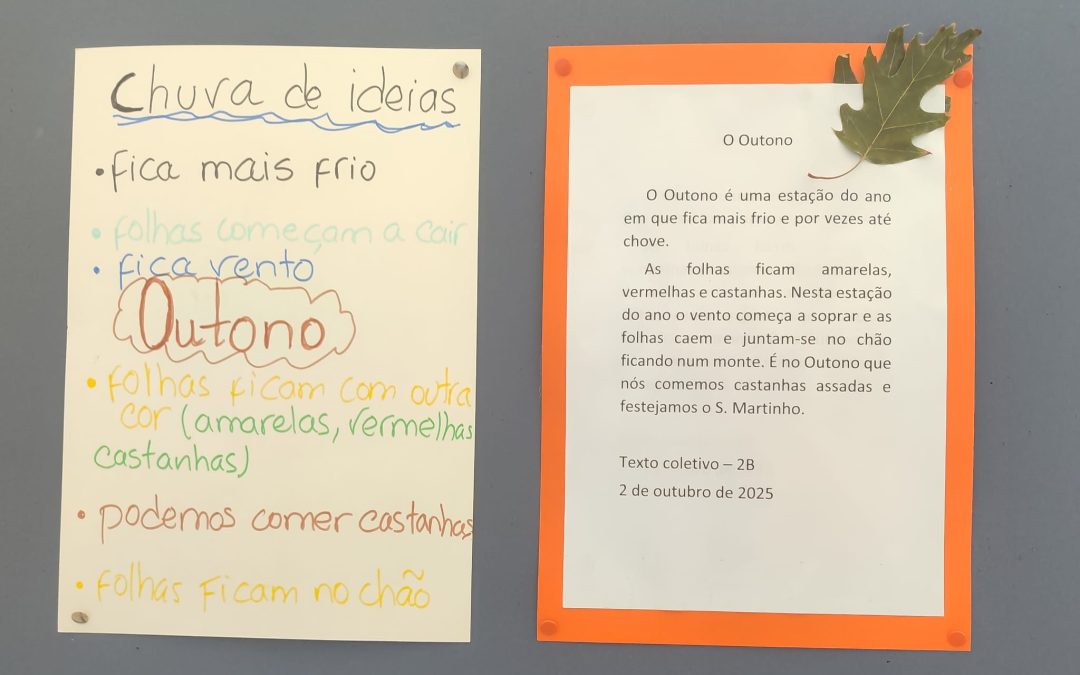 Chuva de ideias
• fica mais frio
• folhas começam a cair
• fica vento
Outono
• folhas ficam com outra
cor (amarelas, vermelhas
castanhas)
• podemos comer castanhas
• folhas ficam no chão
O Outono
O Outono é uma estação do ano
em que fica mais frio e por vezes até
chove.
As folhas ficam amarelas,
vermelhas e castanhas. Nesta estação
do ano o vento começa a soprar e as
folhas caem e juntam-se no chão
ficando num monte. É no Outono que
nós comemos castanhas assadas e
festejamos o S. Martinho.
Texto coletivo – 2B
2 de outubro de 2025